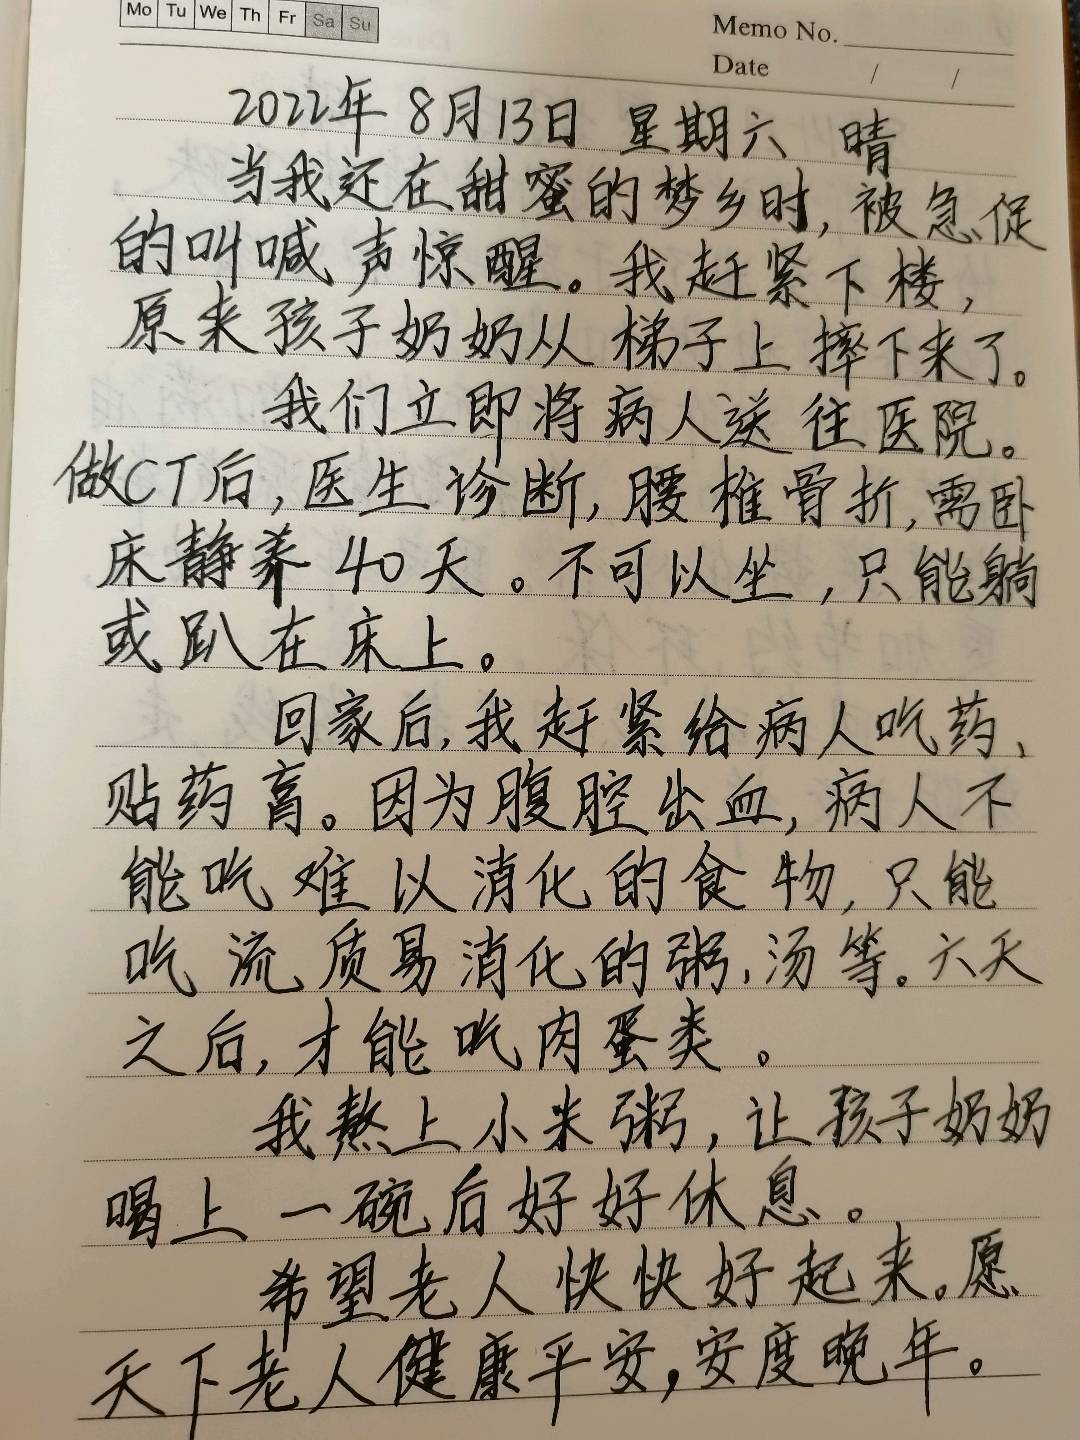 Mo Tu We Th Fr Sa Su
Memo No.
Date / /
2022年8月13日 星期六 晴
当我还在甜蜜的梦乡时,被急促
的叫喊声惊醒。我赶紧下楼,
原来孩子奶奶从梯子上摔下来了。
我们立即将病人送往医院。
做CT后,医生诊断,腰椎骨折,需卧
床静养40天。不可以坐,只能躺
或趴在床上。
回家后,我赶紧给病人吃药、
贴药膏。因为腹腔出血,病人不
能吃难以消化的食物,只能
吃流质易消化的粥,汤等。六天
之后,才能吃肉蛋类。
我熬上小米粥,让孩子奶奶
喝上一碗后好好休息。
希望老人快快好起来。愿
天下老人健康平安,安度晚年。